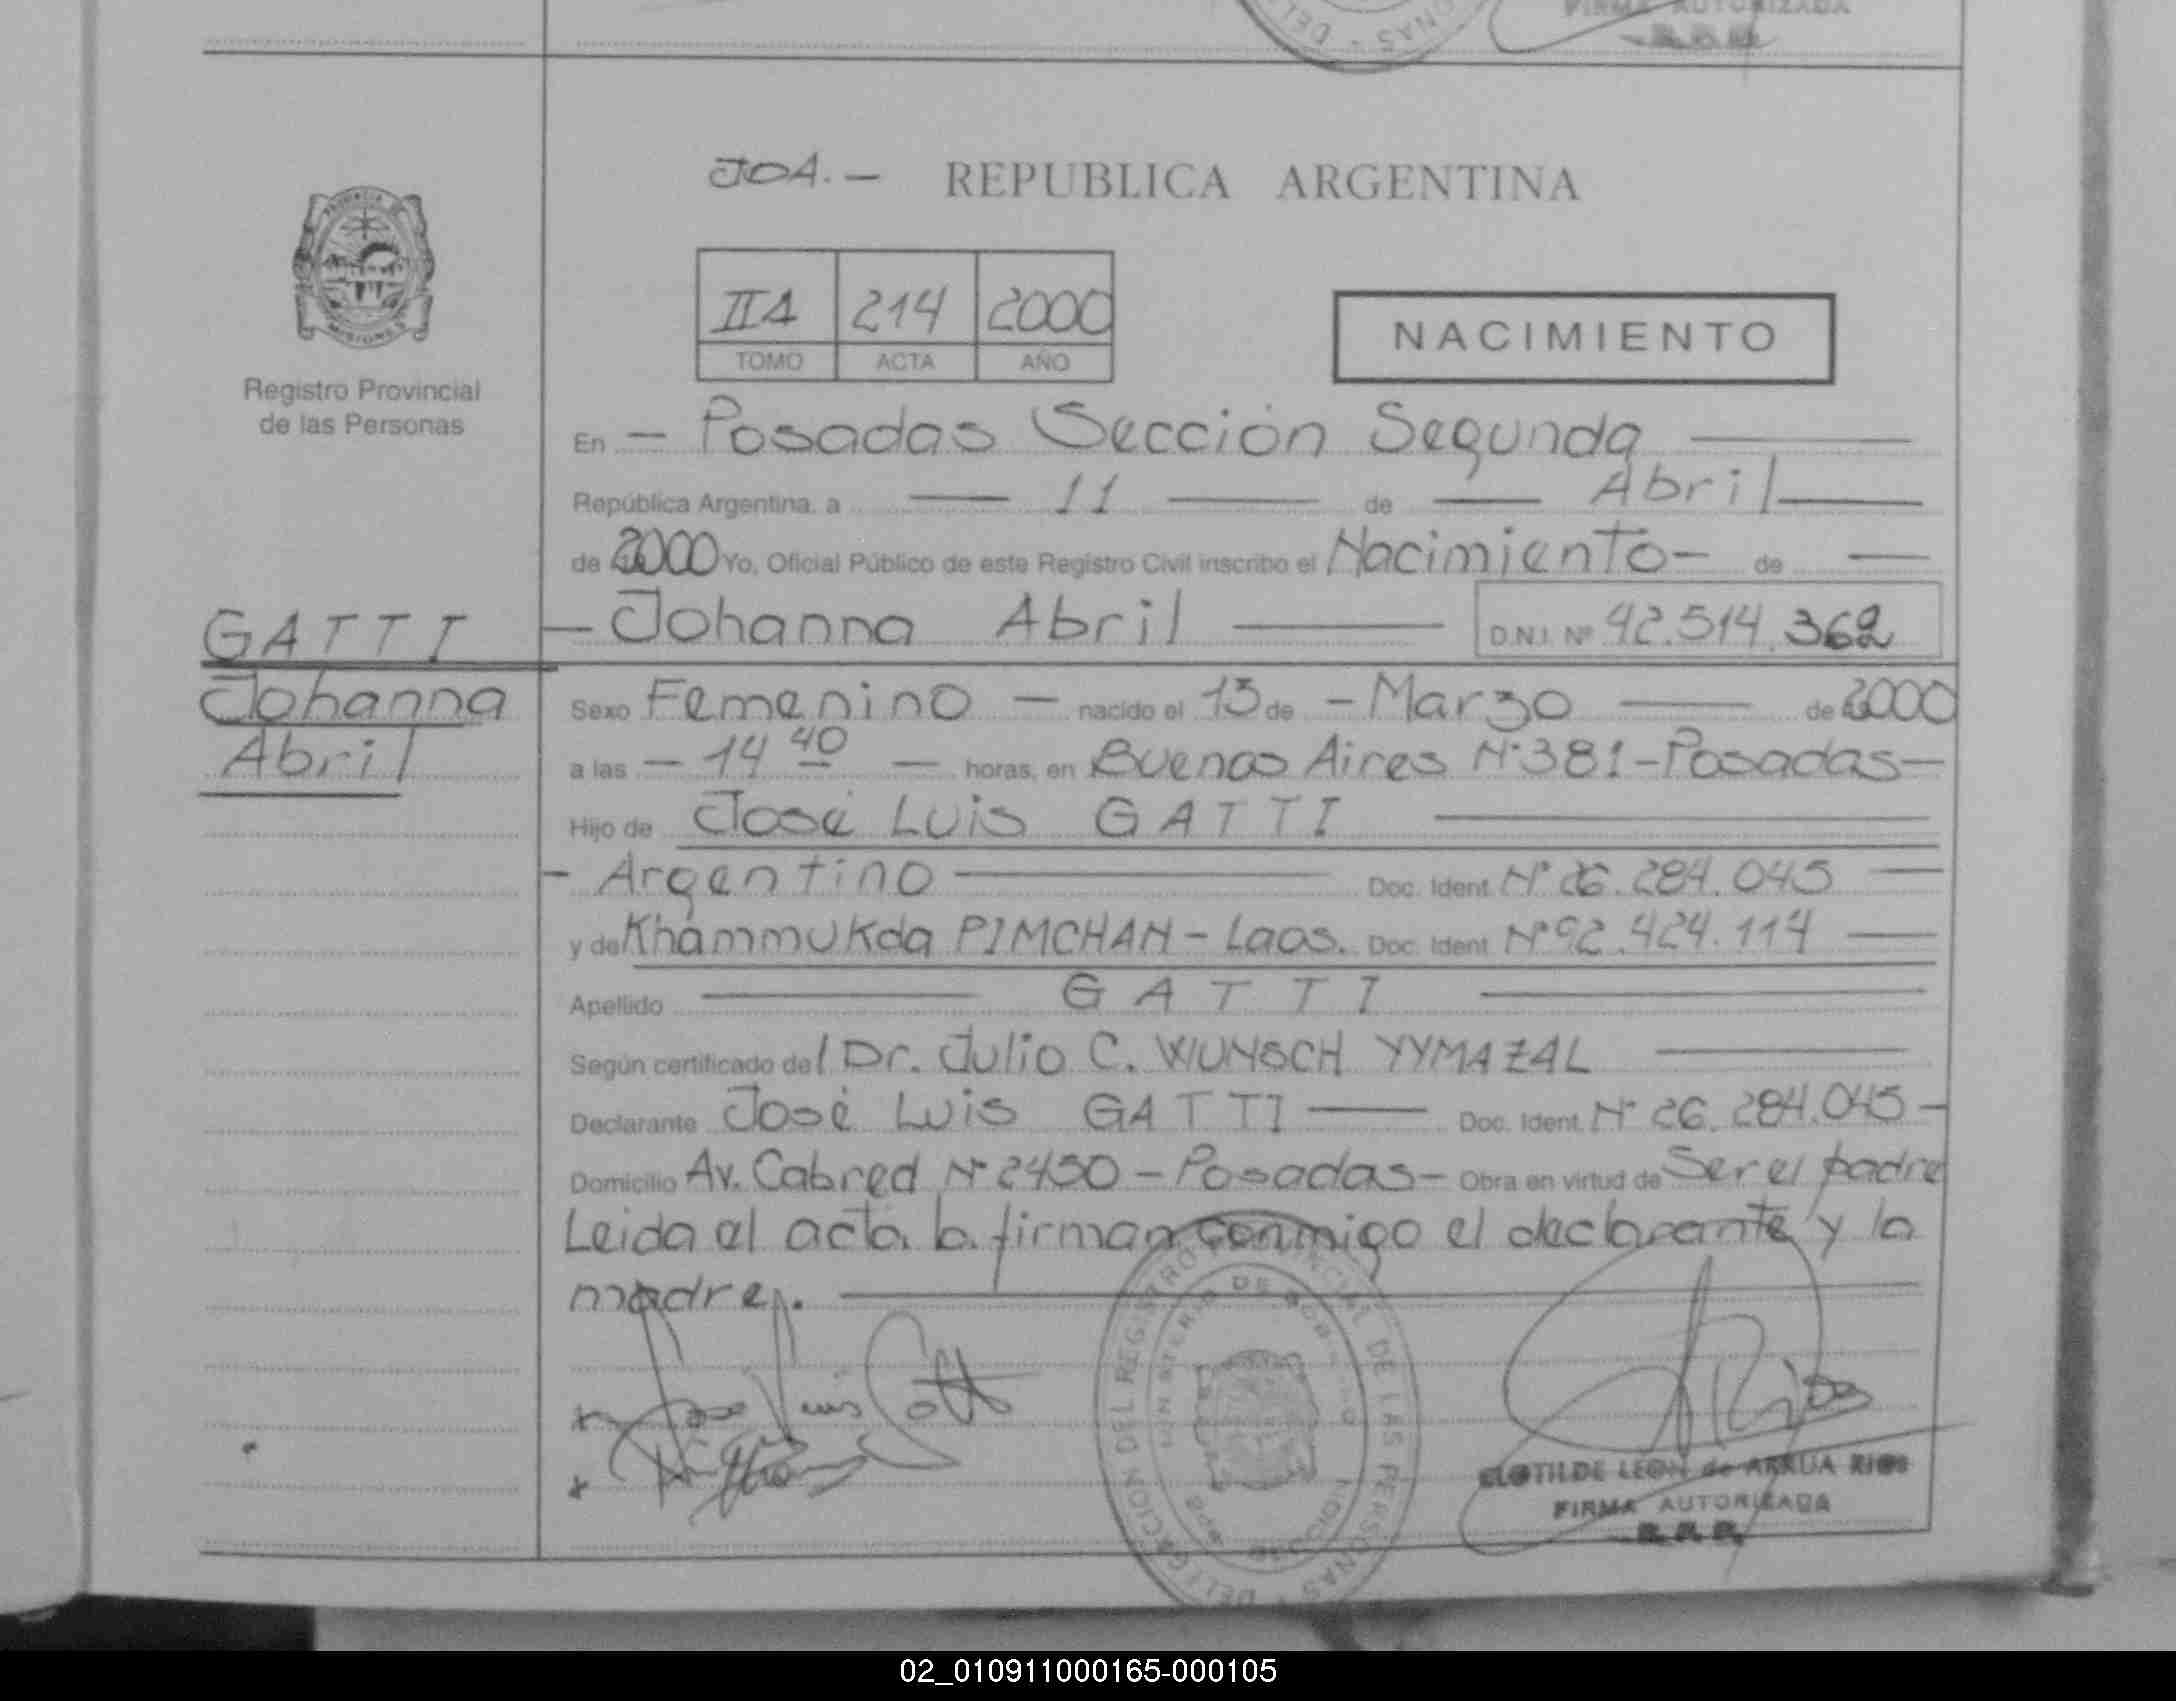 FIRMA AUTORIZADA
JOA.- REPUBLICA ARGENTINA
PROVINCIA DE
MISIONES
Registro Provincial
de las Personas
IIA 214 2000
TOMO ACTA AÑO
NACIMIENTO
En - Posadas Sección Segunda
República Argentina, a 11 de Abril
de 2000 Yo, Oficial Público de este Registro Civil inscribo el Nacimiento - de
GATTI - Johanna Abril D.N.I. Nº 42.514.362
Johanna Sexo Femenino - nacido el 13 de - Marzo de 2000
Abril a las - 14 40 - horas, en Buenos Aires Nº 381 - Posadas -
Hijo de José Luis GATTI
- Argentino Doc. Ident. Nº 26.284.045
y de Khammukda PIMCHAN - Laos. Doc. Ident. Nº 92.424.114
Apellido GATTI
Según certificado del Dr. Julio C. WUNSCH YYMAZAL
Declarante José Luis GATTI Doc. Ident. Nº 26.284.045 -
Domicilio Av. Cabred Nº 2450 - Posadas - Obra en virtud de Ser el padre
Leida el acta la firman conmigo el declarante y la
madre.
Jose Luis Gatti
CLOTILDE LEON de ARRUA RIOS
FIRMA AUTORIZADA
R.P.P.
02_010911000165-000105